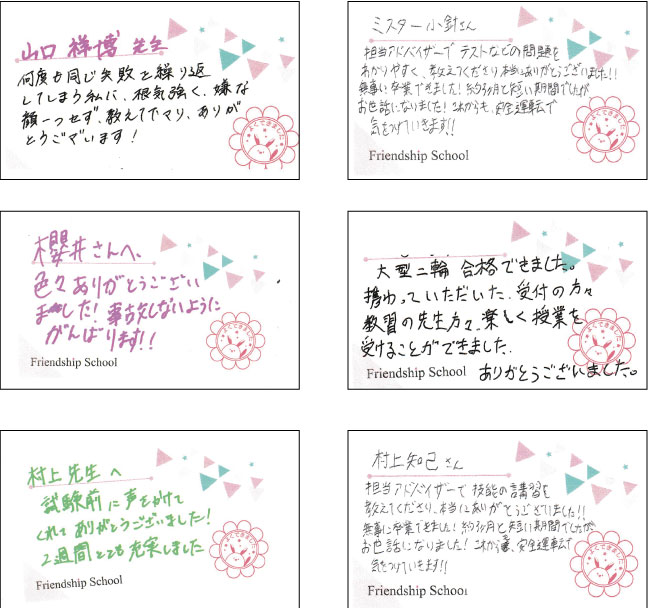 山口 祥博 先生
何度も同じ失敗を繰り返
してしまう私に、根気強く、嫌な
顔一つせず、教えて下さり、ありが
とうございます！
ミスター小針さん
担当アドバイザーで テストなどの問題を
わかりやすく、教えてくださり本当にありがとうございました!!
無事に卒業できました！約3ヶ月と短い期間でしたが
お世話になりました！これからも、安全運転で
気をつけていきます!!
Friendship School
櫻井さんへ、
色々ありがとうござい
ました！事故しないように
がんばります!!
Friendship School
大型二輪 合格できました。
携わっていただいた、受付の方々
教習の先生方々、楽しく授業を
受けることができました、
Friendship School
ありがとうございました。
村上先生へ
試験前に声をかけて
くれて ありがとうございました！
2週間とても充実しました
Friendship School
村上知己さん
担当アドバイザーで 技能の講習を
教えてくださり、本当にありがとうございました!!
無事に卒業できました！約3ヶ月と短い期間でしたが
お世話になりました！これから、安全運転で
気をつけていきます!!
Friendship School